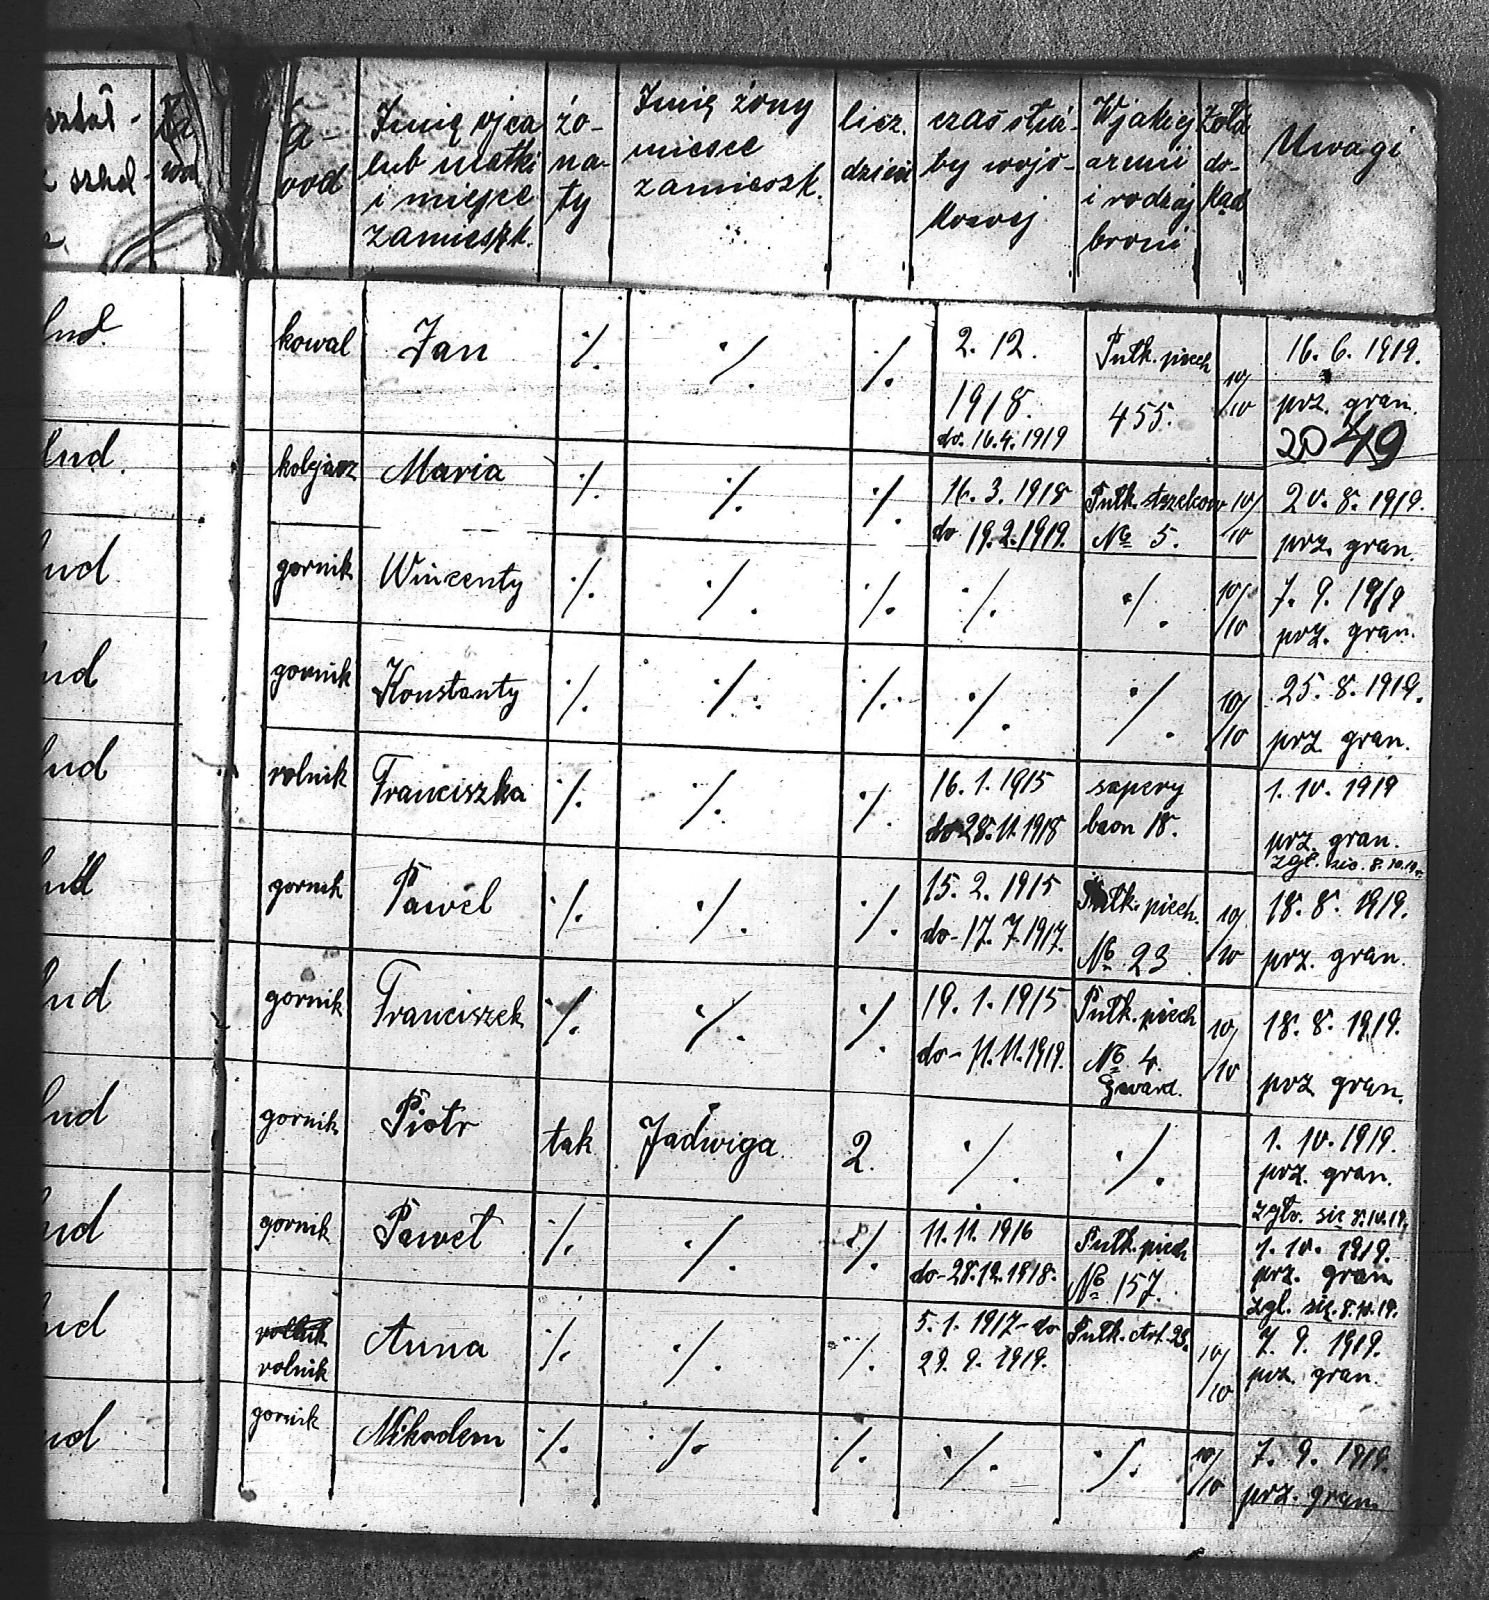 wod
Imię ojca
lub matki
i miejsce
zamieszk.
żo-
na-
ty
Imię żony
miesce
zamieszk.
licz.
dzieci
czas służ-
by wojs-
kowej
W jakiej
armii
i rodzaj
broni
Żołd
do-
kąd
Uwagi
lud.
kowal
Jan
·/.
·/.
·/.
2. 12.
1918.
do. 16.4.1919
Pułk. piech
455.
10/
/10
16. 6. 1919.
prz. gran.
2049
lud.
kolejarz
Maria
·/.
·/.
·/.
16. 3. 1918
do 19.2.1919.
Pułk. strzelcow
№ 5.
10/
/10
20. 8. 1919.
prz. gran.
ud.
gornik
Wincenty
·/.
·/.
·/.
·/.
·/.
10/
/10
7. 9. 1919
prz. gran.
ud
gornik
Konstanty
·/.
·/.
·/.
·/.
·/.
10/
/10
25. 8. 1919.
prz gran.
lud
rolnik
Franciszka
·/.
·/.
·/.
16. 1. 1915
do 28. 11. 1918
sapery
baon 18.
1. 10. 1919
prz. gran.
zgł. się. 8.10.19.
ud
gornik
Paweł
·/.
·/.
·/.
15. 2. 1915
do- 17. 7. 1917.
Pułk. piech.
№ 23
10/
/10
18. 8. 1919.
prz. gran.
lud
gornik
Franciszek
·/.
·/.
·/.
19. 1. 1915
do- 11.11.1919.
Pułk. piech
№ 4.
Gward.
10/
/10
18. 8. 1919.
prz gran.
lud
gornik
Piotr
tak
Jadwiga
2.
·/.
·/.
1. 10. 1919.
prz. gran.
zgło. się 8.10.19.
ud
gornik
Paweł
·/.
·/.
·/.
11. 11. 1916
do- 28.12.1918.
Pułk. piech
№ 157.
1. 10. 1919.
prz. gran
zgł. się. 8.10.19.
ud
rolnik
rolnik
Anna
·/.
·/.
·/.
5. 1. 1917- do
29. 9. 1919.
Pułk. Art. 23.
10/
/10
7. 9. 1919.
prz. gran.
ud.
gornik
Nikodem
·/.
·/.
·/.
·/.
·/.
10/
/10
7. 9. 1919.
prz. gran.